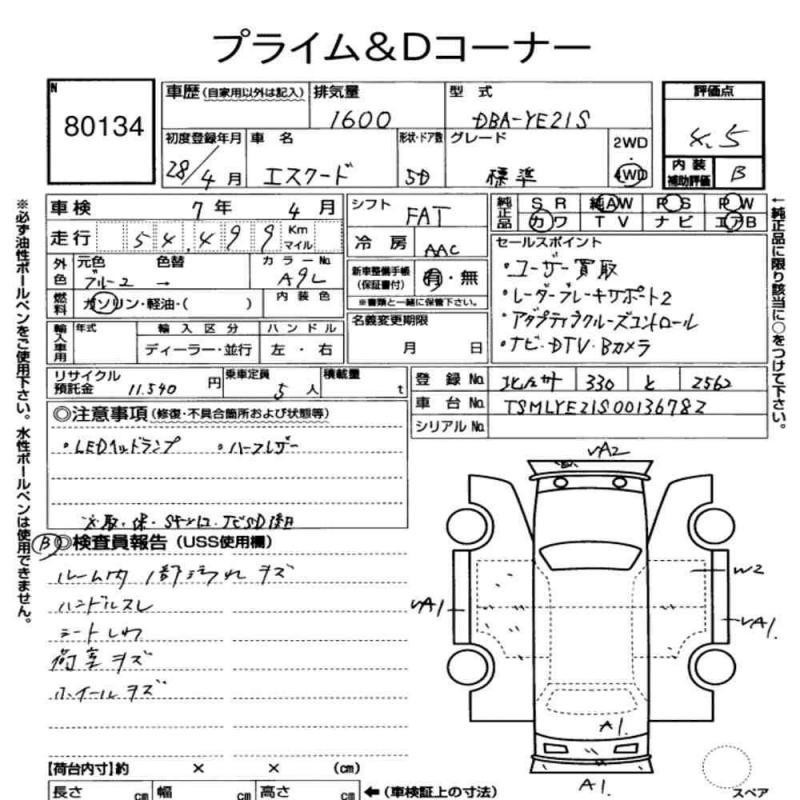 プライム&Dコーナー
N
80134
車歴 (自家用以外は記入)
排気量
1600
型式
DBA-YE21S
評価点
4.5
初度登録年月
28/4月
車名
エスクード
形状・ドア数
5D
グレード
標準
2WD
4WD
内装
補助評価
B
車検 7年 4月
シフト FAT
純正品
SR 純AW PS PW
カワ TV ナビ エアB
走行 54,499 Km マイル
冷房 AAC
外色
元色 ブルー2
色替 →
カラーNo. A9L
新車整備手帳
(保証書付)
有・無
※書類と一緒に保管下さい。
セールスポイント
・ユーザー買取
・レーダーブレーキサポート2
・アダプティブクルーズコントロール
・ナビ・DTV・Bカメラ
燃料 ガソリン・軽油・( )
内装色
名義変更期限
月 日
輸入車用
年式
輸入区分
ディーラー・並行
ハンドル
左・右
リサイクル
預託金 11,540円
乗車定員 5人
積載量 t
登録No. 330 と 2562
車台No. TSMLYE21S00136782
シリアルNo.
◎注意事項 (修復・不具合箇所および状態等)
・LEDヘッドランプ ・ハーフレザー
B ◎検査員報告 (USS使用欄)
ルーム内 1部汚れ キズ
ハンドルスレ
シートしわ
荷室キズ
ホイールキズ
【荷台内寸】約 × × (cm)
長さ cm 幅 cm 高さ cm ←(車検証上の寸法)
※必ず油性ボールペンをご使用下さい。水性ボールペンは使用できません。
←純正品に限り該当に○をつけて下さい。
VA2
W2
VA1
VA1.
A1.
A1.
スペア